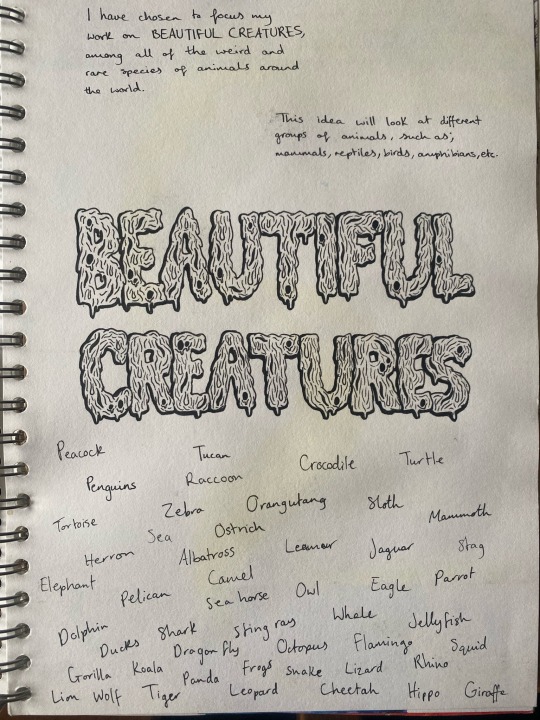 I have chosen to focus my
work on BEAUTIFUL CREATURES,
among all of the weird and
rare species of animals around
the world.
This idea will look at different
groups of animals, such as;
mammals, reptiles, birds, amphibians, etc.
BEAUTIFUL
CREATURES
Peacock Tucan Crocodile Turtle
Penguins Raccoon
Tortoise Zebra Orangutang Sloth Mammoth
Sea Ostrich
Herron Albatross Leamur Jaguar Stag
Elephant Pelican Camel Owl Eagle Parrot
Sea horse
Dolphin Ducks Shark Sting ray Whale Jellyfish
Dragon fly Octopus Flamingo Squid
Gorilla Koala Panda Frogs Snake Lizard Rhino
Lion Wolf Tiger Leopard Cheetah Hippo Giraffe